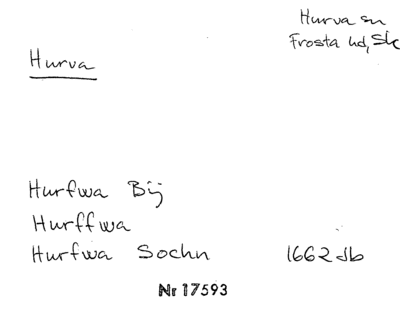 Hurva sn
Frosta hd, Sk
Hurva
Hurfwa Bij
Hurffwa
Hurfwa Sochn 1662 Jb
Nr 17593